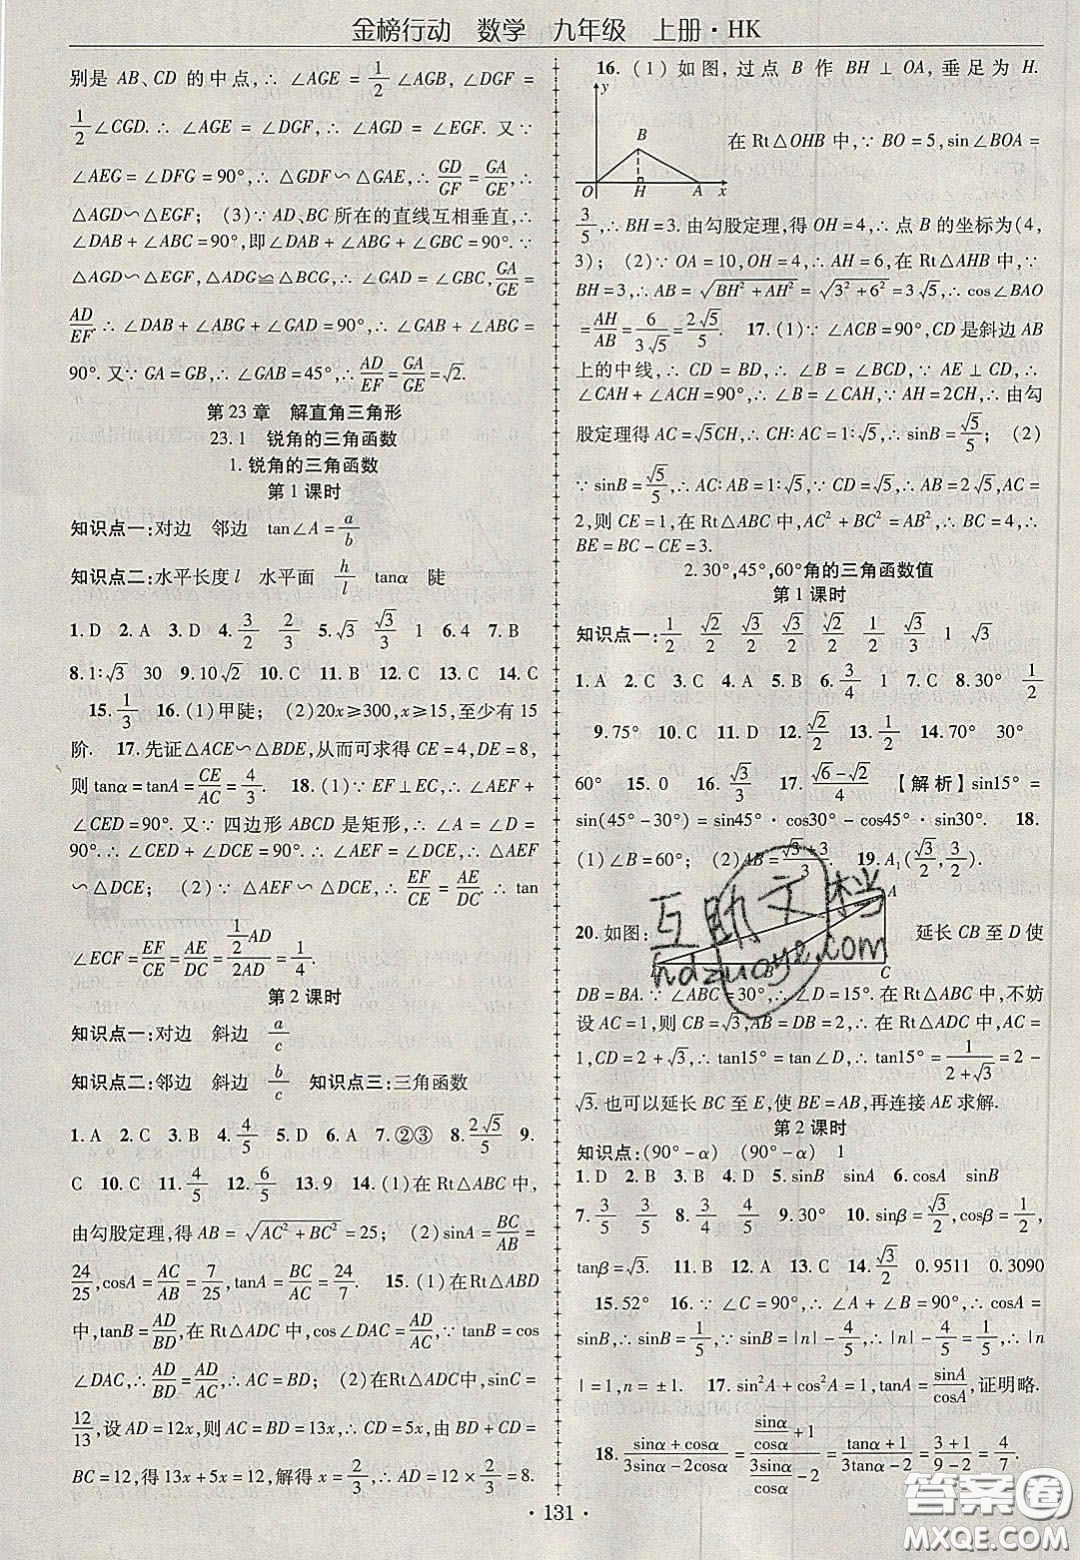 金榜行动　数学　九年级　上册·HK
别是 AB、CD 的中点,∴∠AGE = 1/2 ∠AGB,∠DGF =
1/2 ∠CGD.∴∠AGE = ∠DGF,∴∠AGD = ∠EGF. 又∵
∠AEG = ∠DFG = 90°,∴△GDF∽△GAE,∴ GD/GF = GA/GE,∴
△AGD∽△EGF；(3)∵AD、BC 所在的直线互相垂直,∴
∠DAB + ∠ABC = 90°,即∠DAB + ∠ABG + ∠GBC = 90°. ∵
△AGD∽△EGF,△ADG≌△BCG,∴∠GAD = ∠GBC, GA/GE =
AD/EF.∴∠DAB + ∠ABG + ∠GAD = 90°,∴∠GAB + ∠ABG =
90°. 又∵GA = GB,∴∠GAB = 45°,∴ AD/EF = GA/GE = √2.
第 23 章　解直角三角形
23.1　锐角的三角函数
1.锐角的三角函数
第 1 课时
知识点一:对边　邻边　tan∠A = a/b
知识点二:水平长度 l　水平面　h/l　tanα　陡
1.D　2.A　3.D　4. 3/2　2/3　5.√3　√3/3　1　6.4　7.B
8.1∶√3　30　9.10√2　10.C　11.B　12.C　13.C　14.C
15. 1/3　16.(1)甲陡；(2)20x≥300,x≥15,至少有 15
阶.　17.先证△ACE∽△BDE,从而可求得 CE = 4,DE = 8,
则 tanα = tanA = CE/AC = 4/3.　18.(1)∵EF⊥EC,∴∠AEF +
∠CED = 90°. 又∵四边形 ABCD 是矩形,∴∠A = ∠D =
90°.∴∠CED + ∠DCE = 90°.∴∠AEF = ∠DCE,∴△AEF
∽△DCE；(2)∵△AEF∽△DCE,∴ EF/CE = AE/DC.∴tan
∠ECF = EF/CE = AE/DC = (1/2 AD)/(2AD) = 1/4.
第 2 课时
知识点一:对边　斜边　a/c
知识点二:邻边　斜边　b/c　知识点三:三角函数
1.A　2.C　3.B　4. 4/5　5.D　6.A　7.②③　8. 2√5/5　9.
C　10.C　11. 4/5　12. 6/5　13.9　14.(1)在 Rt△ABC 中,
由勾股定理,得 AB = √(AC² + BC²) = 25；(2)sinA = BC/AB =
24/25,cosA = AC/AB = 7/25,tanA = BC/AC = 24/7.　15.(1)在Rt△ABD
中,tanB = AD/BD,在Rt△ADC 中,cos∠DAC = AD/AC,∵tanB = cos
∠DAC,∴ AD/BD = AD/AC,∴AC = BD；(2)在Rt△ADC 中,sinC =
12/13,设 AD = 12x,则 AC = BD = 13x,∴CD = 5x,由 BD + CD =
BC = 12,得 13x + 5x = 12,解得 x = 2/3,∴AD = 12 × 2/3 = 8.
16.(1)如图,过点 B 作 BH⊥OA,垂足为 H.
y
B
O　H　A　x
在 Rt△OHB 中,∵BO = 5,sin∠BOA =
3/5,∴BH = 3. 由勾股定理,得 OH = 4,∴点 B 的坐标为(4,
3)；(2)∵OA = 10,OH = 4,∴AH = 6,在 Rt△AHB 中,∵
BH = 3,∴AB = √(BH² + AH²) = √(3² + 6²) = 3√5,∴cos∠BAO
= AH/AB = 6/(3√5) = 2√5/5.　17.(1)∵∠ACB = 90°,CD 是斜边 AB
上的中线,∴CD = BD,∴∠B = ∠BCD,∵AE⊥CD,∴
∠CAH + ∠ACH = 90°,∴∠B = ∠CAH,∵AH = 2CH,∴由勾
股定理得 AC = √5CH,∴CH∶AC = 1∶√5,∴sinB = √5/5；(2)
∵sinB = √5/5,∴AC∶AB = 1∶√5,∵CD = √5,∴AB = 2√5,∴AC =
2,则 CE = 1,在 Rt△ABC 中,AC² + BC² = AB²,∴BC = 4,∴
BE = BC - CE = 3.
2.30°,45°,60°角的三角函数值
第 1 课时
知识点一: 1/2　√2/2　√3/2　√3/2　√2/2　1/2　√3/3　1　√3
1.A　2.C　3.C　4.A　5.B　6. 3/4　1　7.C　8.30°　1/2
9.75°　10.C　11.D　12. √2/2　13. 1/2　14.70°　30°
60°　15.0　16. √3/3　17. (√6 - √2)/4　【解析】sin15° =
sin(45° - 30°) = sin45°·cos30° - cos45°·sin30°.　18.
(1)∠B = 60°；(2)AB = (√3 + 3)/3.　19.A₁(√2/2, 3/2).
20.如图:
A
C
延长 CB 至 D 使
DB = BA.∵∠ABC = 30°,∴∠D = 15°. 在 Rt△ABC 中,不妨
设 AC = 1,则 CB = √3,AB = DB = 2,∴在 Rt△ADC 中,AC =
1,CD = 2 + √3,∴tan15° = tan∠D = 1/(2 + √3) = 2 -
√3.也可以延长 BC 至 E,使 BE = AB,再连接 AE 求解.
第 2 课时
知识点:(90° - α)　(90° - α)　1
1.D　2.B　3.A　4.D　5.sinB　sinA　6.cosA　sinB
7. 3/5　3/5　8. 3/4　4/5　9.30°　10.sinβ = √3/2,cosβ = 1/2,
tanβ = √3.　11.B　12.A　13.C　14. √2/2　0.9511　0.3090
15.52°　16.∵∠C = 90°,∴∠A + ∠B = 90°,∴cosA =
sinB,∴sinB = 1/5,∵sinB = |n| - 4/5,∴ 1/5 = |n| - 4/5,∴|n
| = 1,n = ±1.　17.sin²A + cos²A = 1,tanA = sinA/cosA,证明略.
18. (sinα + cosα)/(3sinα - 2cosα) = (sinα/cosα + 1)/(3sinα/cosα - 2) = (tanα + 1)/(3tanα - 2) = (3 + 1)/(9 - 2) = 4/7.
· 131 ·
互助文档
hdzuoye.com
答案圈
MXQE.COM